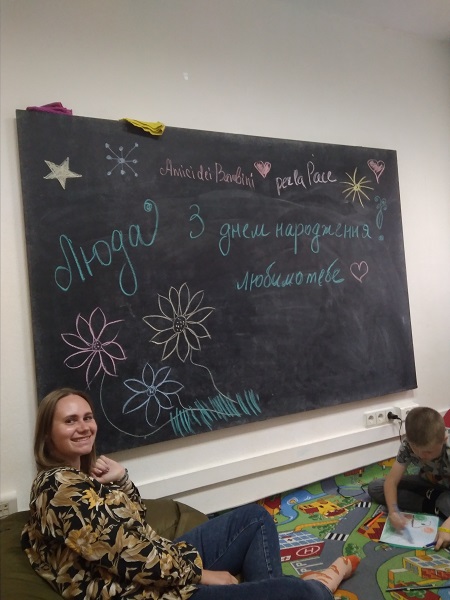 Amici dei Bambini per la Pace
Люда
З днем народження!
любимо тебе